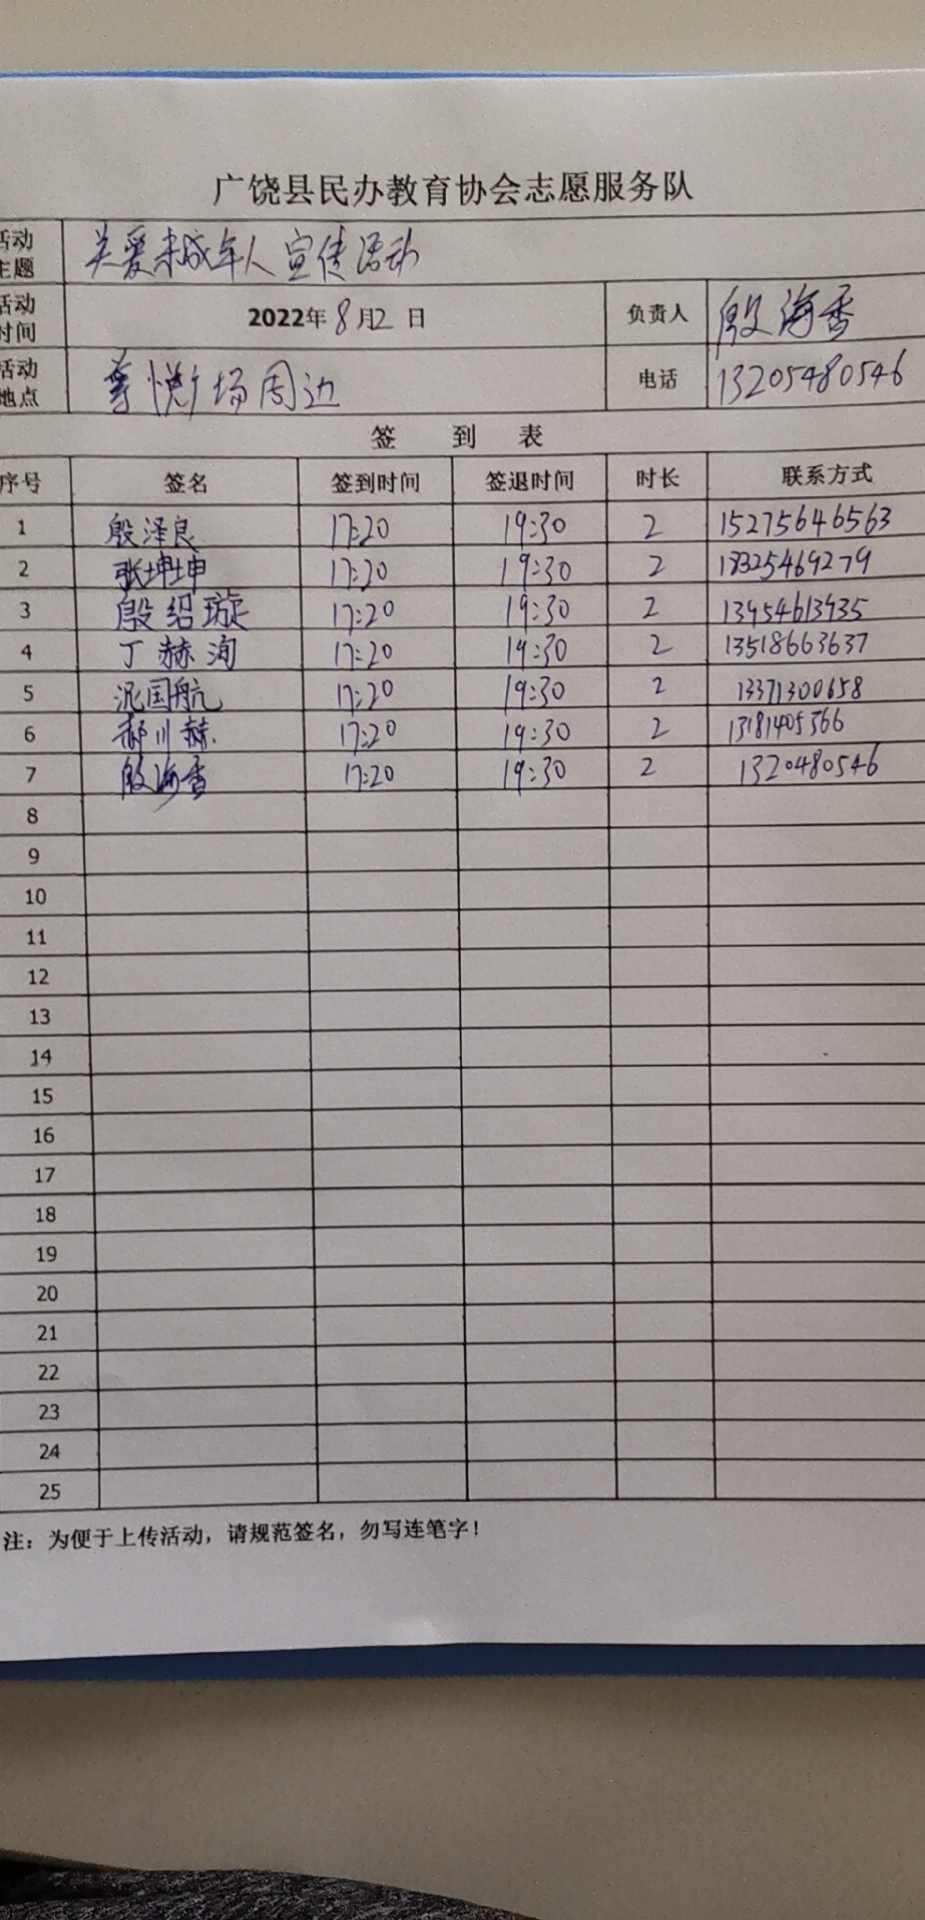 广饶县民办教育协会志愿服务队
活动主题 关爱未成年人宣传活动
活动时间 2022年8月2日 负责人 殷海香
活动地点 尊悦广场周边 电话 13205480546
签 到 表
序号 签名 签到时间 签退时间 时长 联系方式
1 殷泽良 17:20 19:30 2 15275646563
2 张坤坤 17:20 19:30 2 18325469279
3 殷绍璇 17:20 19:30 2 13954613935
4 丁赫洵 17:20 19:30 2 13518663637
5 泥国航 17:20 19:30 2 13371300658
6 郝川赫 17:20 19:30 2 13181405366
7 殷海香 17:20 19:30 2 1320480546
8
9
10
11
12
13
14
15
16
17
18
19
20
21
22
23
24
25
注：为便于上传活动，请规范签名，勿写连笔字！